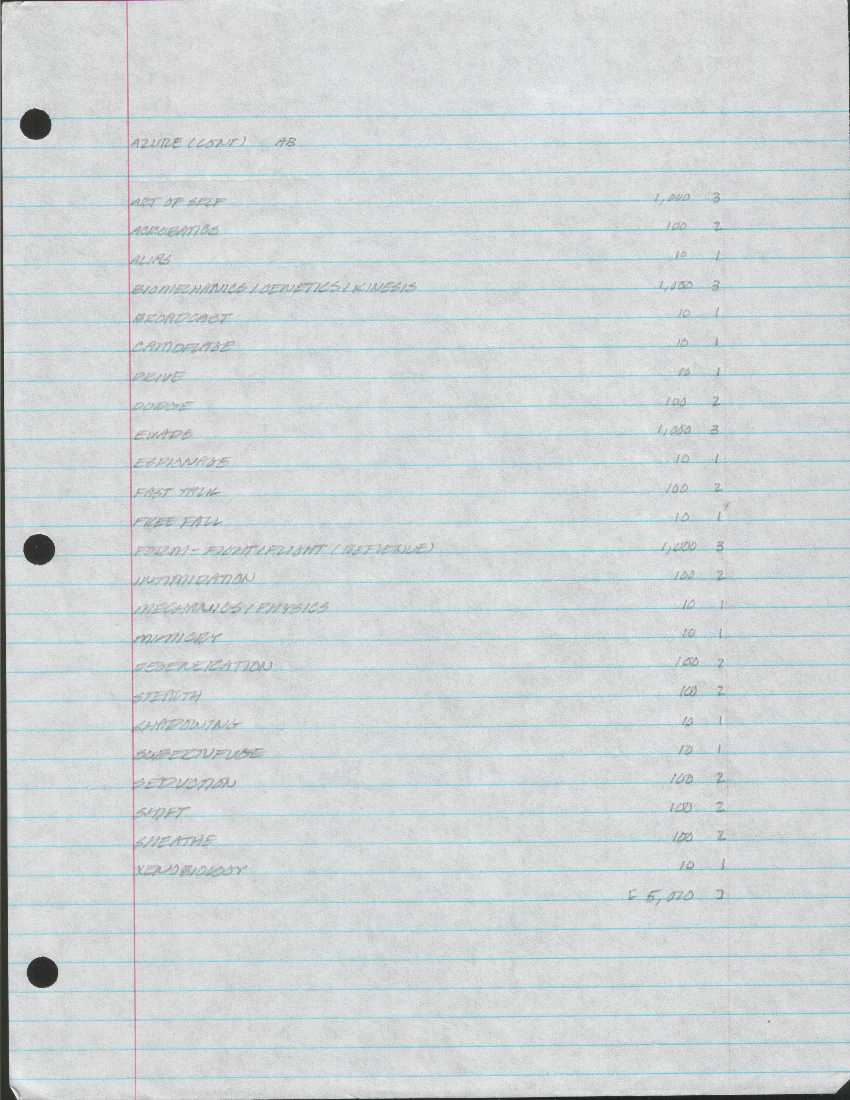 AZURE (CONT) AB
ART OF SELF 1,000 3
ACROBATICS 100 2
ALIAS 10 1
BIOMECHANICS / GENETICS / KINESIS 1,000 3
BROADCAST 10 1
CAMOFLAGE 10 1
DRIVE 10 1
DODGE 100 2
EVADE 1,000 3
ESPIONAGE 10 1
FAST TALK 100 2
FREE FALL 10 1
FORM - FIGHT/FLIGHT 1,000 3
INTIMIDATION 100 2
MECHANICS / PHYSICS 10 1
MIMICRY 10 1
REGENERATION 100 2
STEALTH 100 2
SHADOWING 10 1
SUBERTUFUGE 10 1
SEDUCTION 100 2
SHIFT 100 2
SHEATHE 100 2
XENOBIOLOGY 10 1
[ 5,020 ]